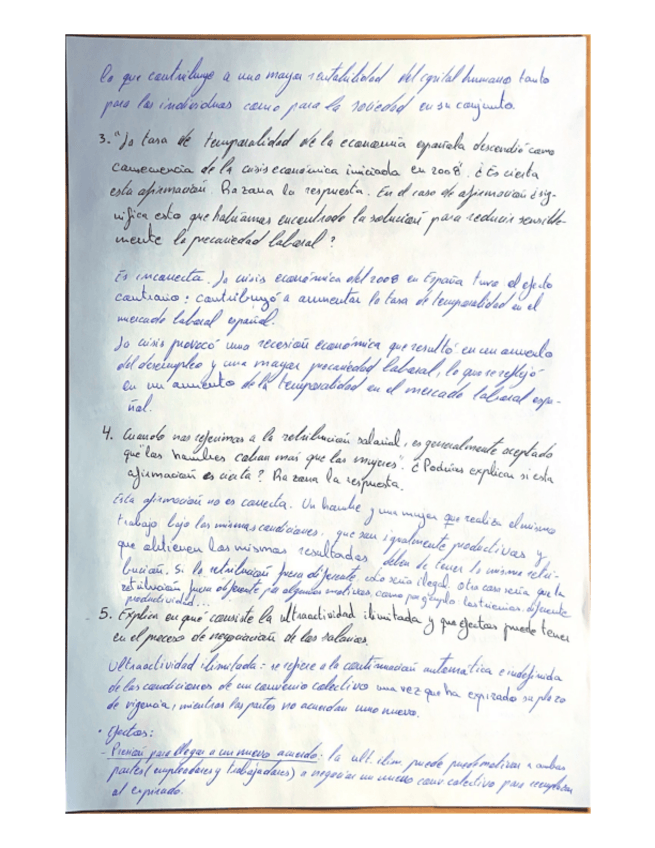 lo que contribuye a una mayor rentabilidad del capital humano tanto
para los individuos como para la sociedad en su conjunto.
3. "La tasa de temporalidad de la economía española descendió como
consecuencia de la crisis económica iniciada en 2008". ¿Es cierta
esta afirmación. Razona la respuesta. En el caso de afirmación ¿sig-
nifica esto que habíamos encontrado la solución para reducir sensible-
mente la precariedad laboral?
Es incorrecta. La crisis económica del 2008 en España tuvo el efecto
contrario: contribuyó a aumentar la tasa de temporalidad en el
mercado laboral español.
La crisis provocó una recesión económica que resultó en un aumento
del desempleo y una mayor precariedad laboral, lo que se reflejó
en un aumento de la temporalidad en el mercado laboral espa-
ñol.
4. Cuando nos referimos a la retribución salarial, es generalmente aceptado
que "los hombres cobran más que las mujeres". ¿Podrías explicar si esta
afirmación es cierta? Razona la respuesta.
Esta afirmación no es correcta. Un hombre y una mujer que realizan el mismo
trabajo bajo las mismas condiciones, que son igualmente productivas y
que obtienen los mismos resultados deben de tener la misma retri-
bución. Si la retribución fuera diferente, esto sería ilegal. Otra cosa sería que la
retribución fuera diferente por algunos motivos, como por ejemplo: diferente
productividad...
5. Explica en qué consiste la ultraactividad ilimitada y que efectos puede tener
en el proceso de negociación de los salarios.
Ultraactividad ilimitada: se refiere a la continuación automática e indefinida
de las condiciones de un convenio colectivo una vez que ha expirado su plazo
de vigencia, mientras las partes no acuerdan uno nuevo.
• Efectos:
- Presión para llegar a un nuevo acuerdo: la ult. ilim. puede motivar a ambas
partes (empleadores y trabajadores) a negociar un nuevo conv. colectivo para reemplazar
al expirado.